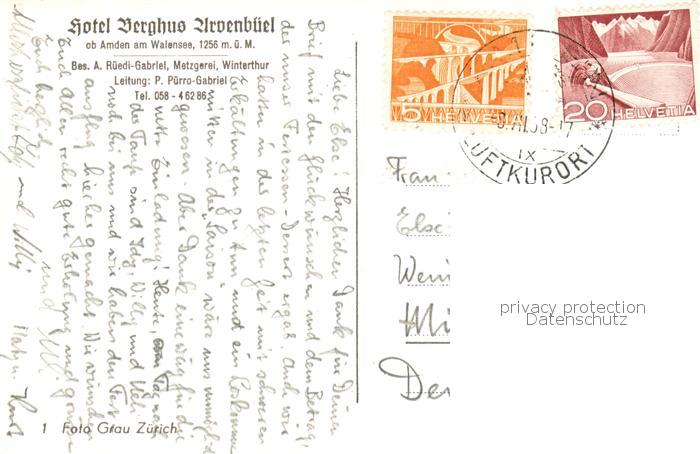 Hotel Berghus Arvenbüel
ob Amden am Walensee, 1256 m. ü. M.
Bes. A. Rüedi-Gabriel, Metzgerei, Winterthur
Leitung: P. Pürro-Gabriel
Tel. 058 - 4 62 86
Liebe Else! Herzlichen Dank für Deinen
Brief mit den Glückwünschen und dem Betrag,
den unser Festessen - Dener ergab. Auch wir
hatten in der letzten Zeit mit schweren
Erkältungen zu tun und ein Loskommen
mitten in der "Saison" wäre uns unmöglich
gewesen. Aber Danke einewäg für die
nette Einladung! Heute, am Tag nach
der Taufe sind Idy, Willy und Ueli
noch bei uns und wir haben den Fest-
ausflug hierher gemacht. Wir wünschen
Euch Allen recht gute Erholung und grüssen
Euch herzlich
und
und Willy
5 HELVETIA
20 HELVETIA
58-17
IX
LUFTKURORT
Frau
Else
Wein
Mi
De
privacy protection
Datenschutz
1 Foto Grau Zürich